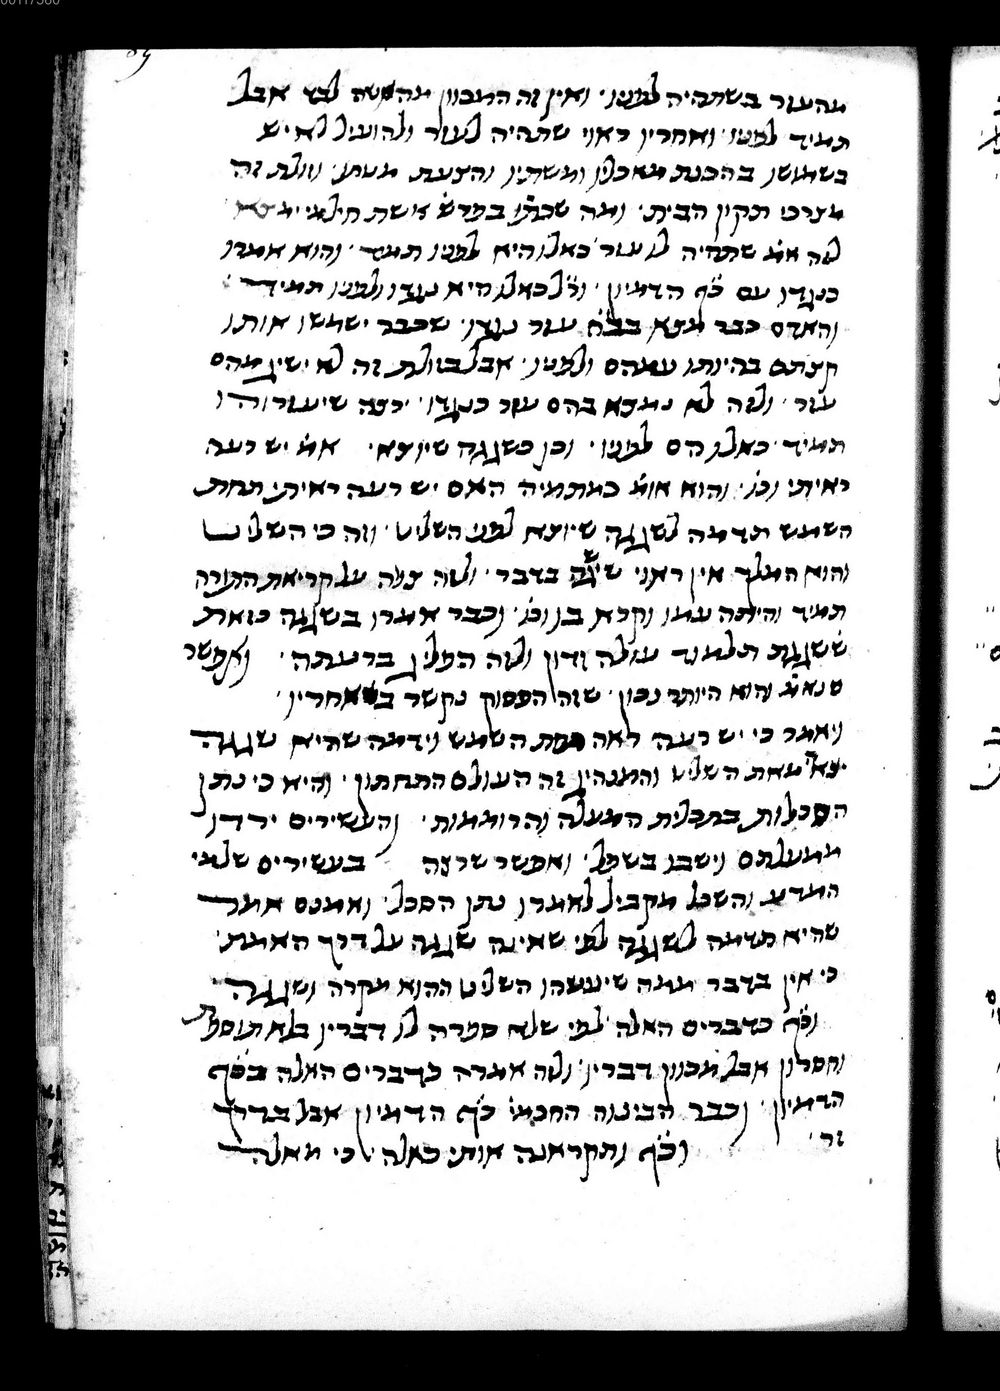 מהעזר בשתהיה לפניו׳ ואין זה המכוון מהאשה לבד אבל
תמיד לפניו׳ ואחריו ראוי שתהיה לעזר ולהועיל לאיש
בשמושו בהכנת מאכלו ומשתיו והצעת מטתו׳ וזולת זה
מצרכי תקון הבית׳ ומה שכתו׳ בפרש׳ אשת חיל מי ימצא
לזה אמ׳ שתהיה לו עזר כאלו היא לפניו תמיד׳ והוא אמרו
כנגדו עם כ״ף הדמיון׳ ור״ל כאלו היא נגדו ולפניו תמיד
והאדם כבר מצא בב״ח עזר נגדו׳ שכבר ישמשו אותו
קצתם בהיותו עמהם ולפניו׳ אבל בזולת זה לא ישיג מהם
עזר׳ ולזה לא נמצא בהם עזר כנגדו׳ ירצה שיעזרוהו
תמיד כאלו הם לפניו׳ וכן כשגגה שיוצא׳ אמ׳ יש רעה
ראיתי וכו׳ והוא אומ׳ כמתמיה האם יש רעה ראיתי תחת
השמש תדמה לשגגה שיוצא לפני השליט׳ וזה כי השליט
והוא המלך אין ראוי שישגה בדבר׳ ולזה צוה על קריאת התורה
תמיד והיתה עמו וקרא בו וכו׳ וכבר אמרו בשגגה כזאת
ששגגת תלמוד עולה זדון ולזה הפליג ברעתה׳ ואפשר
שנאמ׳ והוא היותר נכון׳ שזה הפסוק נקשר באחריו׳
ויאמר כי יש רעה ראה תחת השמש וידמה שהיא שגגה
יצאה מאת השליט והמנהיג זה העולם התחתון׳ והיא כי נתן
הסכלות בתכלית המעלה והרוממות׳ והעשירים ירדו
ממעלתם וישבו בשפל׳ ואפשר שרצה בעשירים שלמי
המדע והשכל מקביל לאמרו נתן הסכל׳ ואמנם אמר
שהיא תדמה לשגגה לפי שאינה שגגה על דרך האמת׳
כי אין בדבר ממה שיעשהו השליט ההוא מקרה ושגגה
וכ״ף כדברים האלה לפי שלא ספרה לו דבריו בלא תוספת
וחסרון אבל מכוון דבריו׳ ולזה אמרה כדברים האלה בכ״ף
הדמיון׳ וכבר הבינוה החכמי׳ כ״ף הדמיון אבל בדרך
זר׳ וכ״ף ותקראנה אותי כאלה׳ כי מאלה